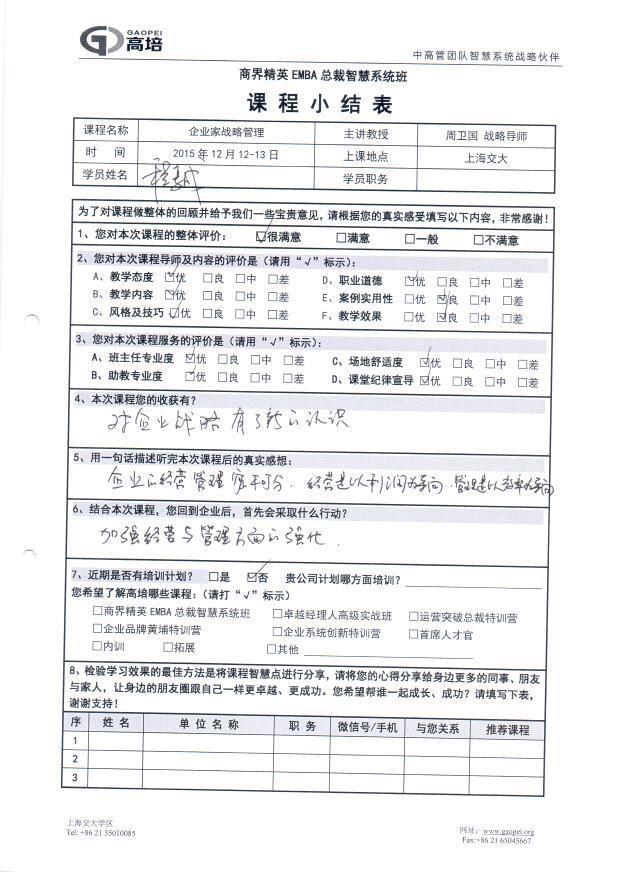 GAOPEI
高培
中高管团队智慧系统战略伙伴
商界精英 EMBA 总裁智慧系统班
课程小结表
课程名称 企业家战略管理 主讲教授 周卫国 战略导师
时 间 2015 年 12 月 12-13 日 上课地点 上海交大
学员姓名 学员职务
为了对课程做整体的回顾并给予我们一些宝贵意见,请根据您的真实感受填写以下内容,非常感谢!
1、您对本次课程的整体评价: ☑很满意 □满意 □一般 □不满意
2、您对本次课程导师及内容的评价是(请用“√”标示):
A、教学态度 ☑优 □良 □中 □差 D、职业道德 ☑优 □良 □中 □差
B、教学内容 ☑优 □良 □中 □差 E、案例实用性 □优 ☑良 □中 □差
C、风格及技巧 ☑优 □良 □中 □差 F、教学效果 □优 ☑良 □中 □差
3、您对本次课程服务的评价是(请用“√”标示):
A、班主任专业度 ☑优 □良 □中 □差 C、场地舒适度 ☑优 □良 □中 □差
B、助教专业度 ☑优 □良 □中 □差 D、课堂纪律宣导 ☑优 □良 □中 □差
4、本次课程您的收获有?
对企业战略有了新的认识
5、用一句话描述听完本次课程后的真实感想:
企业的经营管理密不可分.经营是以利润为导向.管理是以效率为导向
6、结合本次课程,您回到企业后,首先会采取什么行动?
加强经营与管理方面的强化.
7、近期是否有培训计划? □是 ☑否 贵公司计划哪方面培训?
您希望了解高培哪些课程:(请打“√”标示)
□商界精英 EMBA 总裁智慧系统班 □卓越经理人高级实战班 □运营突破总裁特训营
□企业品牌黄埔特训营 □企业系统创新特训营 □首席人才官
□内训 □拓展 □其他
8、检验学习效果的最佳方法是将课程智慧点进行分享,请将您的心得分享给身边更多的同事、朋友
与家人,让身边的朋友圈跟自己一样更卓越、更成功。您希望帮谁一起成长、成功?请填写下表,
谢谢支持!
序 姓 名 单 位 名 称 职 务 微信号/手机 与您关系 推荐课程
1
2
3
上海交大学区
Tel: +86 21 35010085
网址: www.gaopei.org
Fax:+86 21 65045667